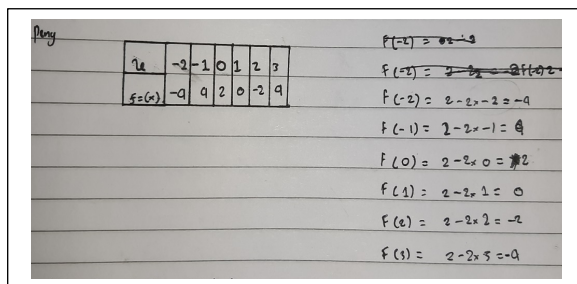 Peny
x -2 -1 0 1 2 3
f=(x) -4 4 2 0 -2 4
f(-2) = 2-2×-2=-4
f(-1) = 2-2×-1=
f(0) = 2-2×0= 2
f(1) = 2-2×1= 0
f(2) = 2-2×2=-2
f(3) = 2-2×3=-4